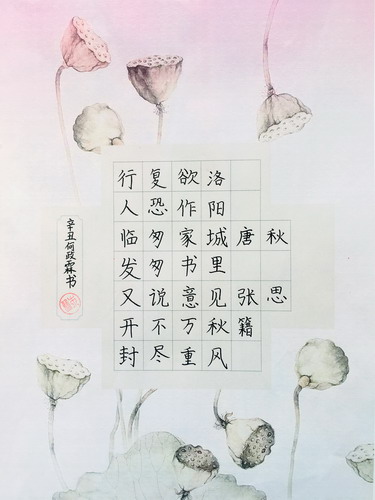 秋思
唐 张籍
洛阳城里见秋风
欲作家书意万重
复恐匆匆说不尽
行人临发又开封
辛丑何政霖书